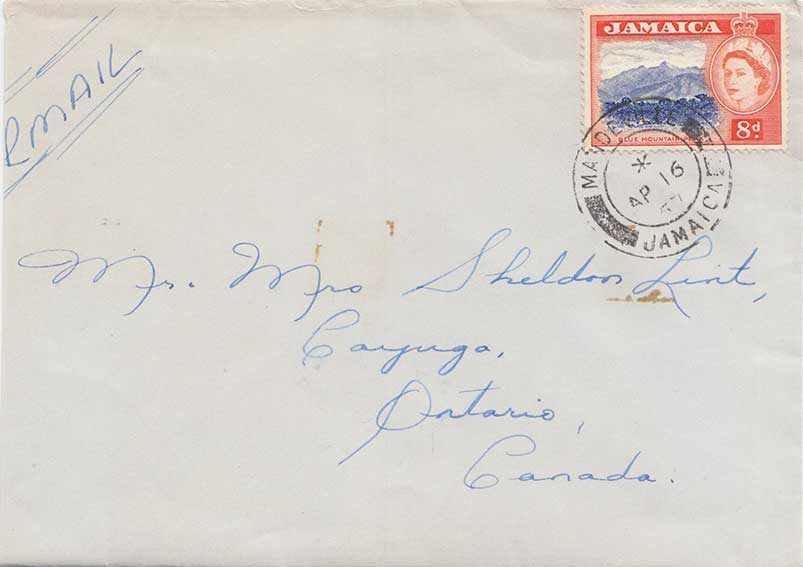 RMAIL
JAMAICA
8d.
BLUE MOUNTAIN
MANDEVILLE
*
AP 16
57
JAMAICA
Mr. Mrs Sheldon Lint,
Cayuga,
Ontario,
Canada.